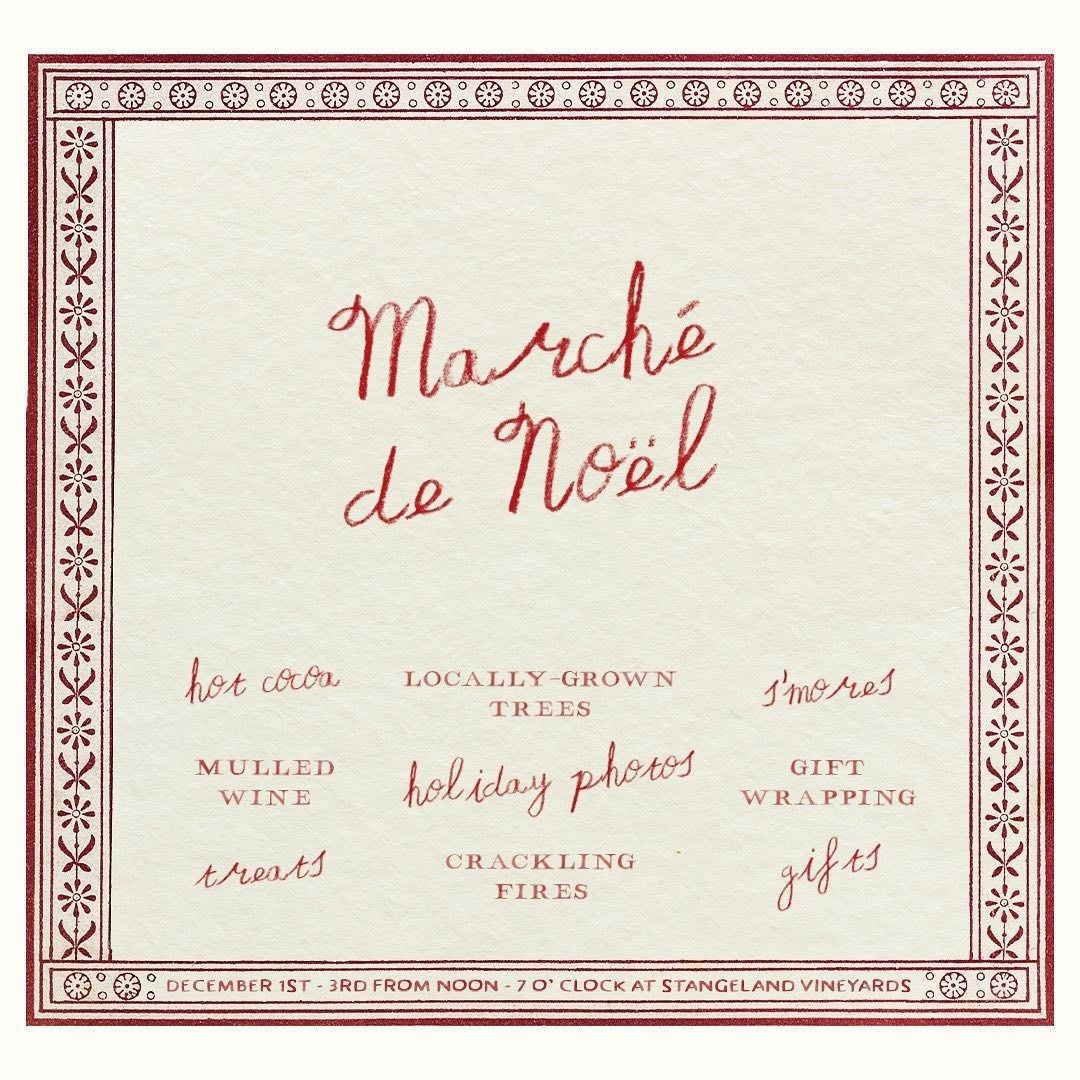 Marché
de Noël
hot cocoa
LOCALLY-GROWN
TREES
s'mores
MULLED
WINE
holiday photos
GIFT
WRAPPING
treats
CRACKLING
FIRES
gifts
DECEMBER 1ST - 3RD FROM NOON - 7 O' CLOCK AT STANGELAND VINEYARDS